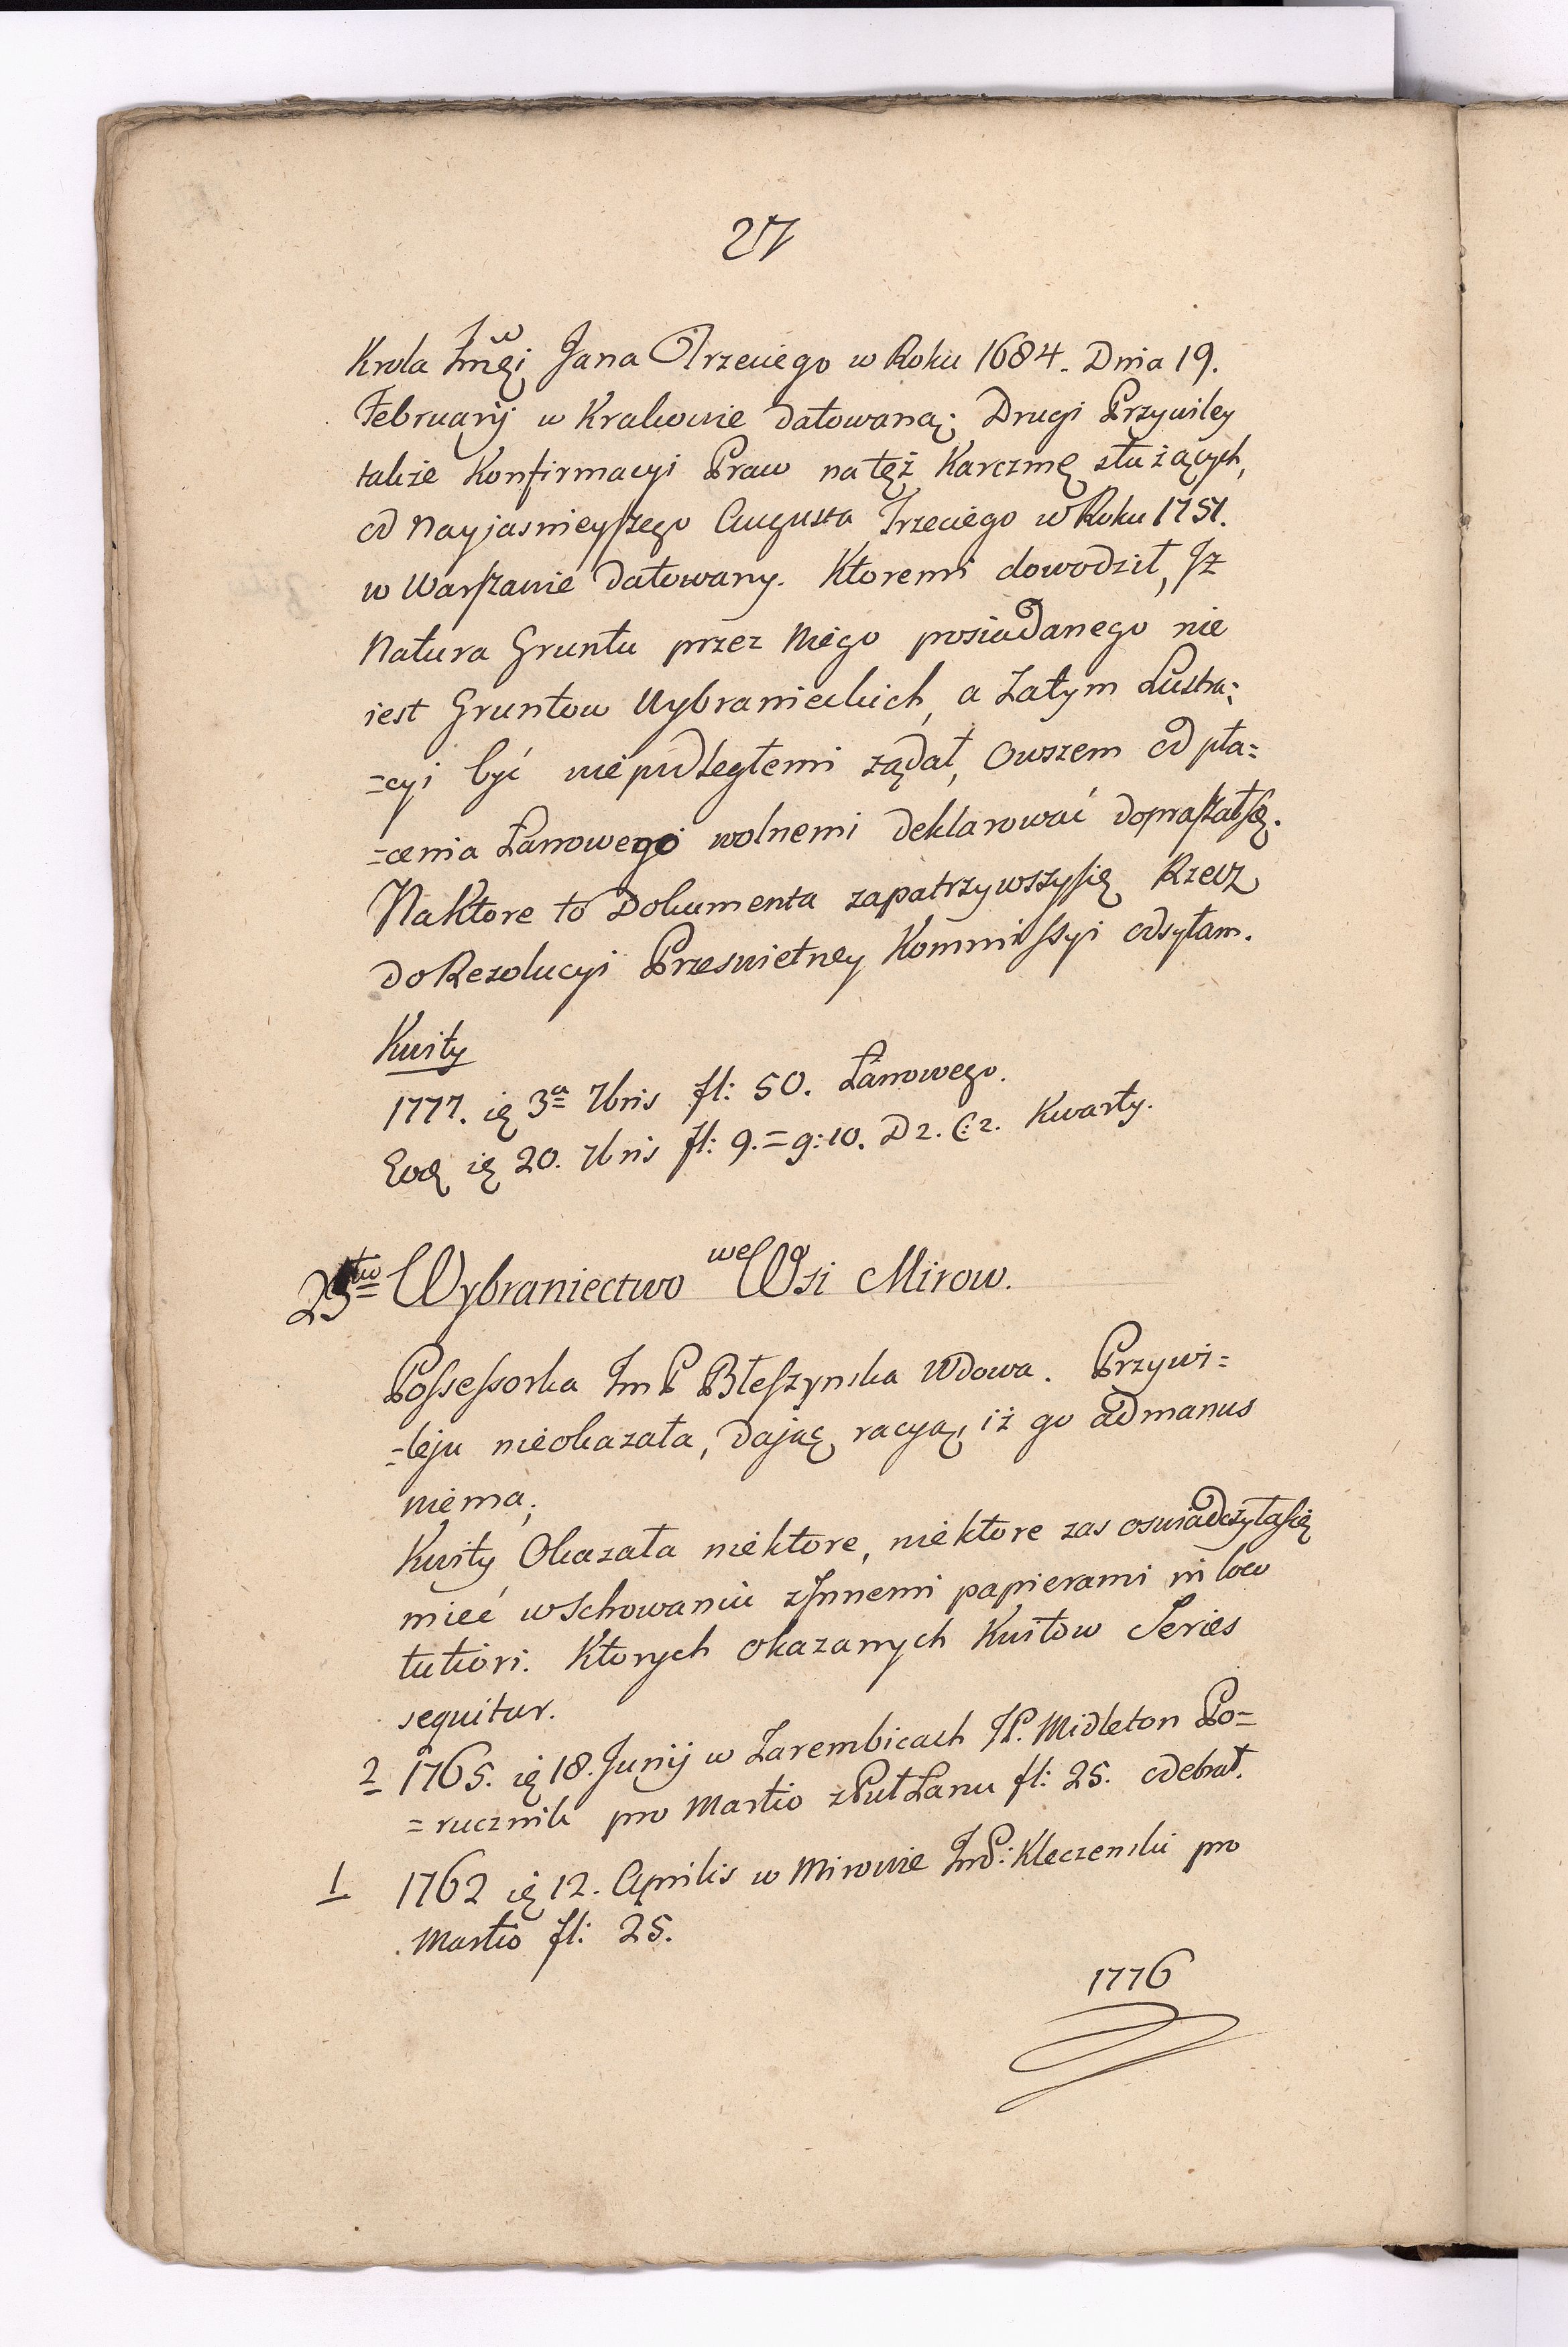 27
Krola Jmęi Jana Trzeciego w Roku 1684. Dnia 19.
Februarij w Krakowie datowaną; Drugi Przywiley
także Konfirmacyi Praw na tęż Karczmę służących,
od Nayjasnieyszego Augusta Trzeciego w Roku 1751.
w Warszawie datowany. Ktoremi dowodził, Jz
Natura Gruntu przez Niego posiadanego nie
iest Gruntow Wybranieckich, a Zatym Lustra:
=cyi być niepodległemi ządał, Owszem od pła=
=cenia Łanowego wolnemi deklarować dopraszałsię.
Naktore to Dokumenta zapatrzywszysię Rzecz
do Rezolucyi Przeswietney Kommissyi odsyłam.
Kwity
1777. ię 3a 7bris fl: 50. Łanowego.
ię 20. 7bris fl: 9.=9:10. D 2. C: 2. Kwarty.
25to Wybraniectwo we Wsi Mirow.
Possessorka Jm P Błeszynska Wdowa. Przywi=
=leju nieokazała, dając racyą, iż go admanus
niema;
Kwity Okazała niektore, niektore zas oswiadczyłasię
mieć w Schowaniu z Jnnemi papierami in loco
tutiori. Ktorych okazanych Kwitow Series
sequitur.
2 1765. ię 18. Junij w Zarembicach JP. Midleton Po=
=rucznik pro Martio z Puł Łanu fl: 25. odebrał.
1 1762 ię 12. Aprilis w Mirowie JmP: Kleczenski pro
Martio fl: 25.
1776